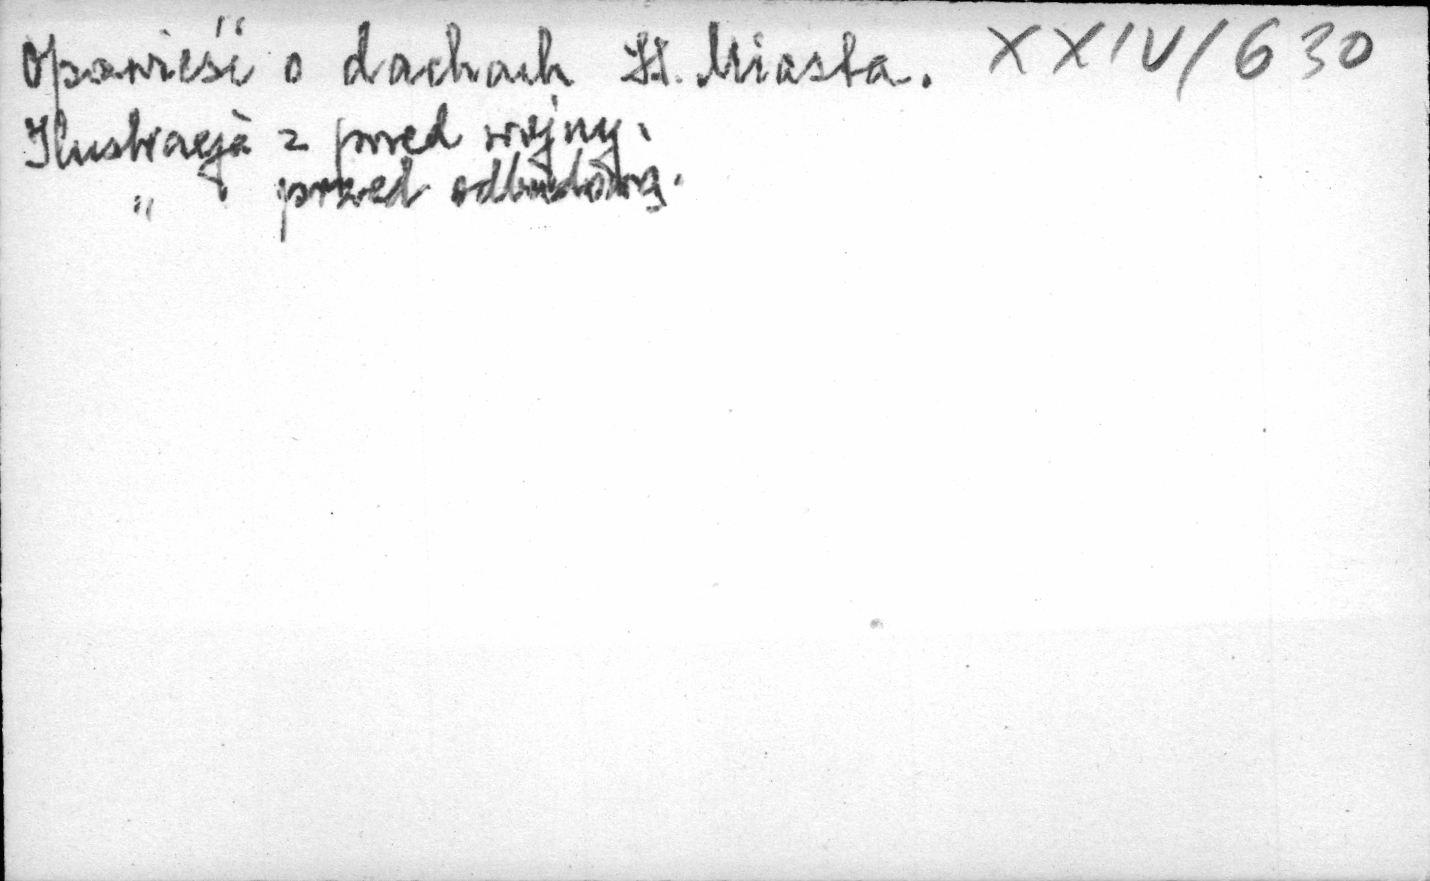 Opowieść o dachach St. Miasta. XXIV/630
Ilustracja z przed wojny.
" przed odbudową.